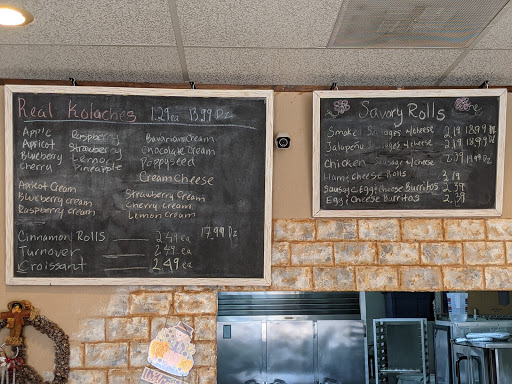 Real Kolaches 1.29ea 13.99 Dz
Apple Raspberry Bavarian Cream
Apricot Strawberry Chocolate Cream
Blueberry Lemon Poppyseed
Cherry Pineapple Cream Cheese
Apricot Cream Strawberry Cream
Blueberry cream Cherry Cream
Raspberry cream Lemon Cream
Cinnamon Rolls 2.49ea 17.99 Dz
Turnover 2.49 ea
Croissant 2.49 ea
Savory Rolls
Smoked Sausages w/cheese 2.19 18.99 Dz
Jalapeño Sausages w/cheese 2.19 18.99 Dz
Chicken Sausage w/cheese 19.99 Dz
Ham & Cheese Rolls 3.19
Sausage, Egg & Cheese Burritos 2.39
Egg & Cheese Burritos 2.39